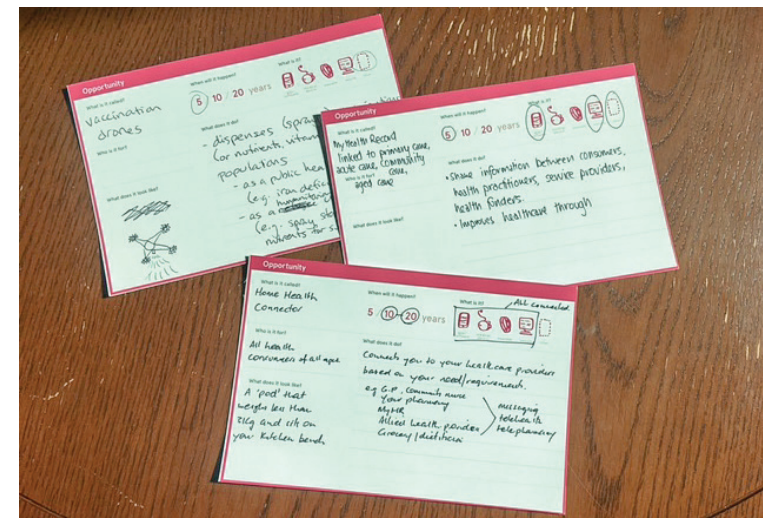 Opportunity
What is it called?
vaccination
drones
Who is it for?
What does it look like?
When will it happen?
5 / 10 / 20 years
What is it?
What does it do?
- dispenses (spray
(or nutrients, vitam
populations
- as a public hea
(e.g. iron defic
humanitarian
- as a
(e.g. spray sto
nutrients for s
Opportunity
What is it called?
My Health Record
linked to primary care,
acute care, community
care,
Who is it for?
aged care
What does it look like?
When will it happen?
5 / 10 / 20 years
What is it?
What does it do?
• Share information between consumers,
health practitioners, service providers,
health funders.
• Improves healthcare through
Opportunity
What is it called?
Home Health
Connector
Who is it for?
All health
consumers of all ages
What does it look like?
A 'pod' that
weighs less than
2kg and sits on
your kitchen bench
When will it happen?
5 / 10 / 20 years
What is it?
All connected
What does it do?
Connects you to your healthcare providers
based on your need/requirements.
eg G.P, community nurse
Your pharmacy
MyHR
Allied health provider
Grocery / dietitian
messaging
telehealth
telepharmacy